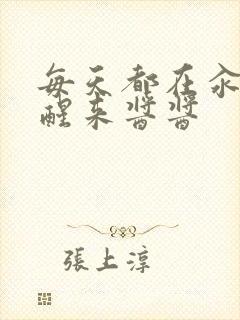 每天都在汆
醒来酱酱
张上淳